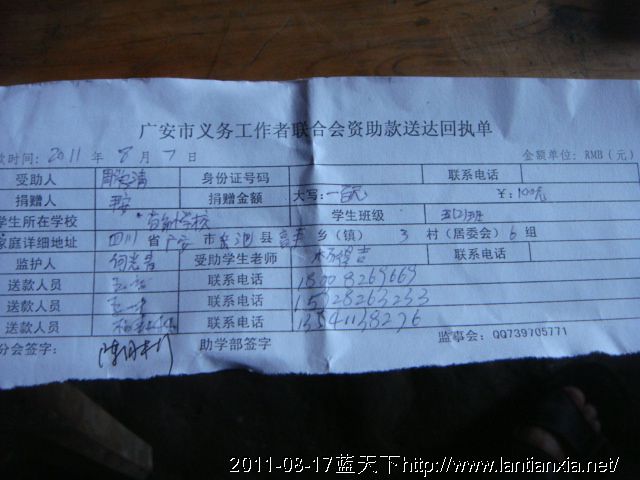 广安市义务工作者联合会资助款送达回执单
款时间: 2011 年 8 月 7 日 金额单位: RMB(元)
受助人 身份证号码 联系电话
捐赠人 捐赠金额 大写: 一百元 ¥: 100元
学生所在学校 学校 学生班级 五(2)班
家庭详细地址 四川 省 广安 市 县 乡(镇) 3 村(居委会) 6 组
监护人 何光吉 受助学生老师 联系电话
送款人员 联系电话 18008269669
送款人员 联系电话 15928263233
送款人员 联系电话 13541138276
分会签字: 助学部签字 监事会: QQ739705771
2011-08-17蓝天下http://www.lantianxia.net/